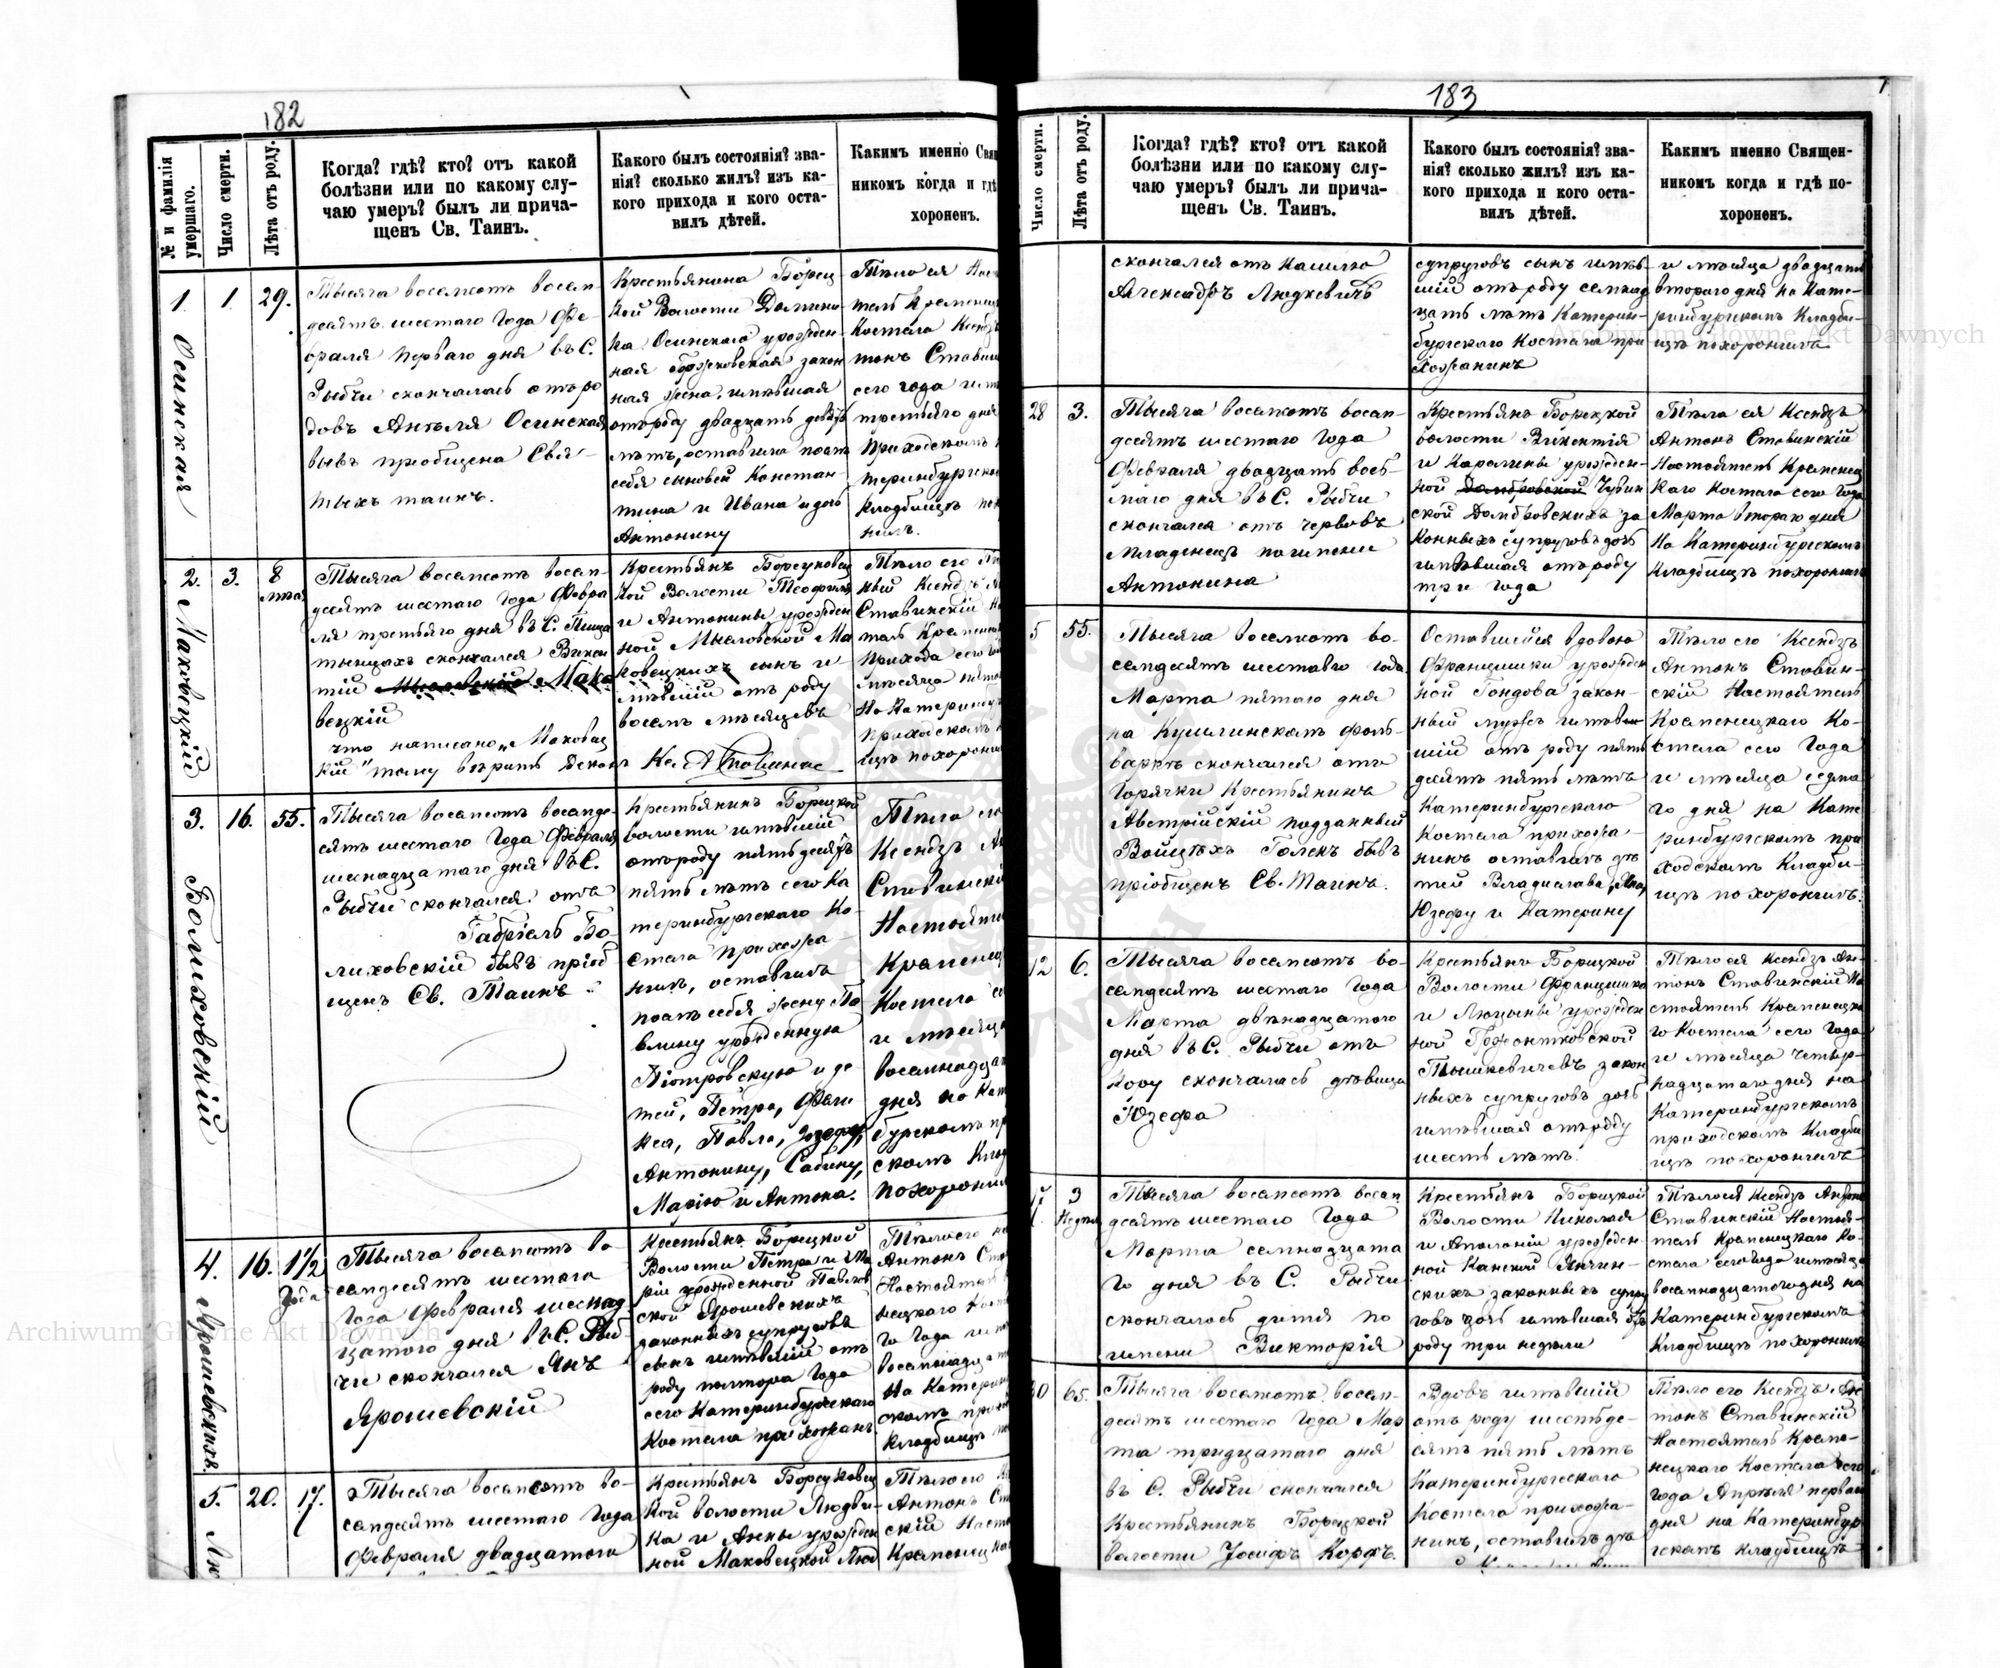 182
№ и фамилія умершаго.
Число смерти.
Лѣта отъ роду.
Когда? гдѣ? кто? отъ какой
болѣзни или по какому слу-
чаю умеръ? былъ ли прича-
щенъ Св. Таинъ.
Какого былъ состоянія? зва-
нія? сколько жилъ? изъ ка-
кого прихода и кого оста-
вилъ дѣтей.
Каким именно Свя
никомъ когда и гдѣ
хороненъ.
1 Осинская
1
29.
Тысяча восемсотъ восем-
десятъ шестаго Года Фе-
враля перваго дня въ С.
Рыбчи скончалась отъ ро
довъ Анѣля Осинская
бывъ пріобщена Свя-
тыхъ таинъ.
Крестьянина Борец
кой Волости Домини
ка Осинскаго урожден
ная закон
ная жена, имѣвшая
отъ роду двадцать девять
лѣтъ, оставила послѣ
себя сыновей Констан
тина и Ивана и дочь
Антонину
Тѣло ея Нас
тель Кременец
Костела Ксендз
тонъ Стави
сего года и м
третьяго дня
Приходскомъ
теринбургско
кладбищѣ по
нилъ.
2. Маковецкій
3.
8
мѣс.
Тысяча восемсотъ восем-
десятъ шестаго Года Февра
ля третьяго дня въ С.
скончался Викен
тій Мако
вецкій
что написано „Маковец
кій" тому вѣрить
Крестьянъ Борсуковец
кой Волости Теофиля
и Антонины урожден
ной Мысловской Ма
ковецкихъ сынъ и
мѣвшій отъ роду
восемь мѣсяцевъ
Кс. А Ставинскі
Тѣло его
Ксендзъ А
Ставинскій На
тель Кременец
Прихода сего го
мѣсяца пятаго
На Катеринбу
приходскомъ
щѣ похорони
3. Болиховскій
16.
55.
Тысяча восемсотъ восемде-
сятъ шестаго Года Февраля
шеснадцатаго дня въ С.
Рыбчи скончался отъ
Габріель Бо-
лиховскій бывъ пріоб
щенъ Св. Таинъ.
Крестьянинъ Борецкой
волости имѣвшій
отъ роду пятьдесятъ
пять лѣтъ сего Ка
теринбургскаго Ко
стела прихожа-
нинъ, оставилъ
послѣ себя жену Па
влину урожденную
Піотровскую и дѣ
тей, Петра, Фели
кса, Павла, Юзефу,
Антонину, Сабину,
Марію и Антона.
Тѣло его
Ксендзъ Ан
Ставинскій
Настояте
Кременец
Костела се
и мѣсяца
восемнадца
дня на Кате
бургскомъ пр
скомъ Клад
похорони
4. Ярошевскихъ.
16.
1½
года
Тысяча восемсотъ во-
семдесятъ шестаго
Года Февраля шеснад
цатого дня въ С. Рыб
чи скончался Янъ
Ярошевскій
Крестьянъ Борецкой
Волости Петра и Ма
ріи урожденной Павлов
ской Ярошевскихъ
законныхъ супруговъ
сынъ имѣвшій отъ
роду полтора Года
сего Катеринбургскаго
Костела прихожанъ
Тѣло его
Антонъ Ста
Настоятель
нецкаго Кос
го Года и м
восемнадца
На Катерин
скомъ прихо
Кладбищѣ по
5. Лю
20.
17.
Тысяча восемсотъ во-
семдесятъ шестаго Года
Февраля двадцатаго
Крестьянъ Борсуковец
кой волости Людви-
ка и Анны урожден
ной Маковецкой Люд
Тѣло его
Антонъ Ст
скій Насто
Кременец
183
Число смерти.
Лѣта отъ роду.
Когда? гдѣ? кто? отъ какой
болѣзни или по какому слу-
чаю умеръ? былъ ли прича-
щенъ Св. Таинъ.
Какого былъ состоянія? зва-
нія? сколько жилъ? изъ ка-
кого прихода и кого оста-
вилъ дѣтей.
Каким именно Священ-
никомъ когда и гдѣ по-
хороненъ.
скончался отъ Кашлю
Александръ Людкевичъ
супруговъ сынъ имѣв-
шій отъ роду семнад
цать лѣтъ Катерин-
бургскаго Костела при
хожанинъ
и мѣсяца двадцать
второго дня на Кате-
ринбургскомъ Кладби-
щѣ похоронилъ
28
3.
Тысяча восемсотъ восем-
десятъ шестаго Года
Февраля двадцать вось-
маго дня въ С. Рыбчи
скончался отъ червовъ
младенецъ по имени
Антонина
Крестьянъ Борецкой
волости Викентія
и Каролины урожден-
ной Домбровской Чубин
ской Домбровскихъ за
конныхъ супруговъ дочь
имѣвшая отъ роду
три года
Тѣла ея Ксендзъ
Антонъ Ставинскій
Настоятель Кременец
каго Костела сего Года
Марта втораго дня
На Катеринбургскомъ
Кладбищѣ похоронилъ
5
55.
Тысяча восемсотъ во-
семдесятъ шестаго года
Марта пятаго дня
на Кушлинскомъ фоль-
варкѣ скончался отъ
Горячки Крестьянинъ
Австрійскій подданный
Войцѣхъ Голекъ бывъ
пріобщенъ Св. Таинъ.
Оставшейся вдовою
Францишки урожден
ной Гондова закон-
ный мужъ имѣв
шій отъ роду пять
десятъ пять лѣтъ
Катеринбургскаго
Костела прихожа-
нинъ оставилъ дѣ
тей Владислава, Яна,
Юзефу и Катерину
Тѣло его Ксендзъ
Антонъ Ставин-
скій Настоятель
Кременецкаго Ко-
стела сего Года
и мѣсяца седма
го дня на Кате
ринбургскомъ при
ходскомъ Кладби-
щѣ похоронилъ.
12
6.
Тысяча восемсотъ во-
семдесятъ шестаго Года
Марта двѣнадцатого
дня въ С. Рыбчи отъ
Кору скончалась дѣвица
Юзефа
Крестьянъ Борецкой
Волости Францишка
и Люцыны урожден
ной Гржентковской
Тышкевичевъ закон
ныхъ супруговъ дочь
имѣвшая отъ роду
шесть лѣтъ.
Тѣло ея Ксендзъ Ан-
тонъ Ставинскій На
стоятель Кременецка
го Костела сего Года
и мѣсяца четыр-
надцатаго дня на
Катеринбургскомъ
приходскомъ Кладби
щѣ похоронилъ
17
3
Недѣли
Тысяча восемсотъ восем
десятъ шестаго Года
Марта семнадцата
го дня въ С. Рыбчи
скончалось дитя по
имени Викторія
Крестьянъ Борецкой
Волости Николая
и Аполоніи урожден-
ной Канской Янчин-
скихъ законныхъ супру
говъ дочь имѣвшая отъ
роду три недѣли
Тѣло ея Ксендзъ Антонъ
Ставинскій Настоя-
тель Кременецкаго Ко-
стела сего Года и мѣсяца
восемнадцатого дня на
Катеринбургскомъ
Кладбищѣ похоронилъ
30
65.
Тысяча восемсотъ восем-
десятъ шестаго Года Мар
та тридцатаго дня
въ С. Рыбчи скончался
Крестьянинъ Борецкой
волости Іосифъ Корфъ.
Вдовъ имѣвшій
отъ роду шестьде-
сятъ пять лѣтъ
Катеринбургскаго
Костела прихожа-
нинъ, оставилъ дѣ
Тѣло его Ксендзъ Ан
тонъ Ставинскій
Настоятель Креме-
нецкаго Костела сего
года Апрѣля перваго
дня на Катеринбур
гскомъ кладбищѣ
Archiwum Główne Akt Dawnych
Archiwum Główne Akt Dawnych